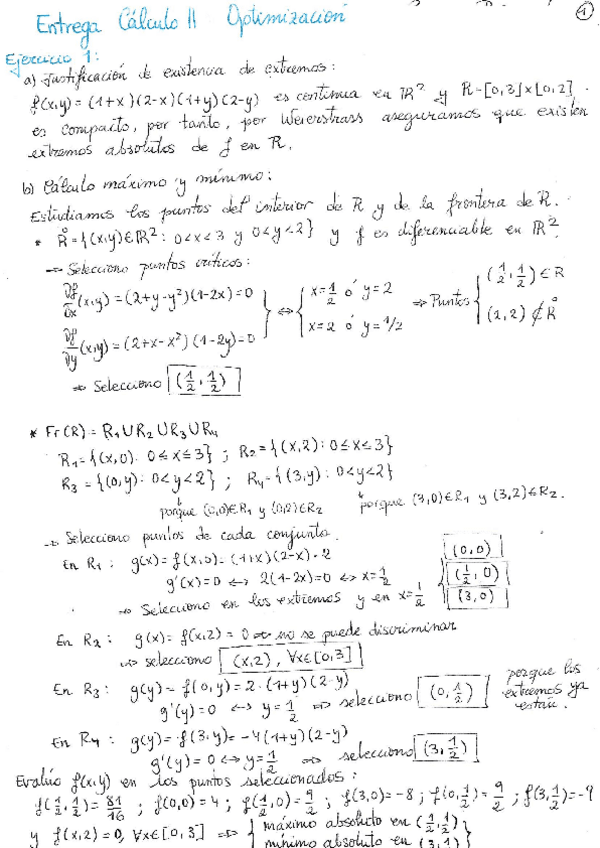 Entrega Cálculo II Optimización
①
Ejercicio 1:
a) Justificación de existencia de extremos:
f(x,y)=(1+x)(2-x)(1+y)(2-y) es continua en ℝ² y R=[0,3]×[0,2]
es compacto, por tanto, por Weierstrass aseguramos que existen
extremos absolutos de f en R.
b) Cálculo máximo y mínimo:
Estudiamos los puntos del interior de R y de la frontera de R.
* R̊={(x,y)∈ℝ²: 0<x<3 y 0<y<2} y f es diferenciable en ℝ².
→ Selecciono puntos críticos:
∂f/∂x (x,y)=(2+y-y²)(1-2x)=0
∂f/∂y (x,y)=(2+x-x²)(1-2y)=0
} ⇔ { x=1/2 ó y=2
x=2 ó y=1/2
⇒ Puntos { (1/2,1/2)∈R
(2,2)∉R̊
⇒ Selecciono (1/2,1/2)
* Fr(R)=R₁∪R₂∪R₃∪R₄
R₁={(x,0): 0≤x≤3}; R₂={(x,2): 0≤x≤3}
R₃={(0,y): 0<y<2}; R₄={(3,y): 0<y<2}
porque (0,0)∈R₁ y (0,2)∈R₂ porque (3,0)∈R₁ y (3,2)∈R₂.
→ Selecciono puntos de cada conjunto.
En R₁: g(x)=f(x,0)=(1+x)(2-x)·2
g'(x)=0 ↔ 2(1-2x)=0 ↔ x=1/2
→ Selecciono en los extremos y en x=1/2 { (0,0)
(1/2,0)
(3,0)
En R₂: g(x)=f(x,2)=0 → no se puede discriminar
→ selecciono (x,2), ∀x∈[0,3]
En R₃: g(y)=f(0,y)=2·(1+y)(2-y)
g'(y)=0 ↔ y=1/2 ⇒ selecciono (0,1/2) porque los extremos ya están.
En R₄: g(y)=f(3,y)=-4(1+y)(2-y)
g'(y)=0 ↔ y=1/2 ⇒ selecciono (3,1/2)
Evalúo f(x,y) en los puntos seleccionados:
f(1/2,1/2)=81/16; f(0,0)=4; f(1/2,0)=9/2; f(3,0)=-8; f(0,1/2)=9/2; f(3,1/2)=-9
y f(x,2)=0, ∀x∈[0,3] ⇒ { máximo absoluto en (1/2,1/2)
mínimo absoluto en